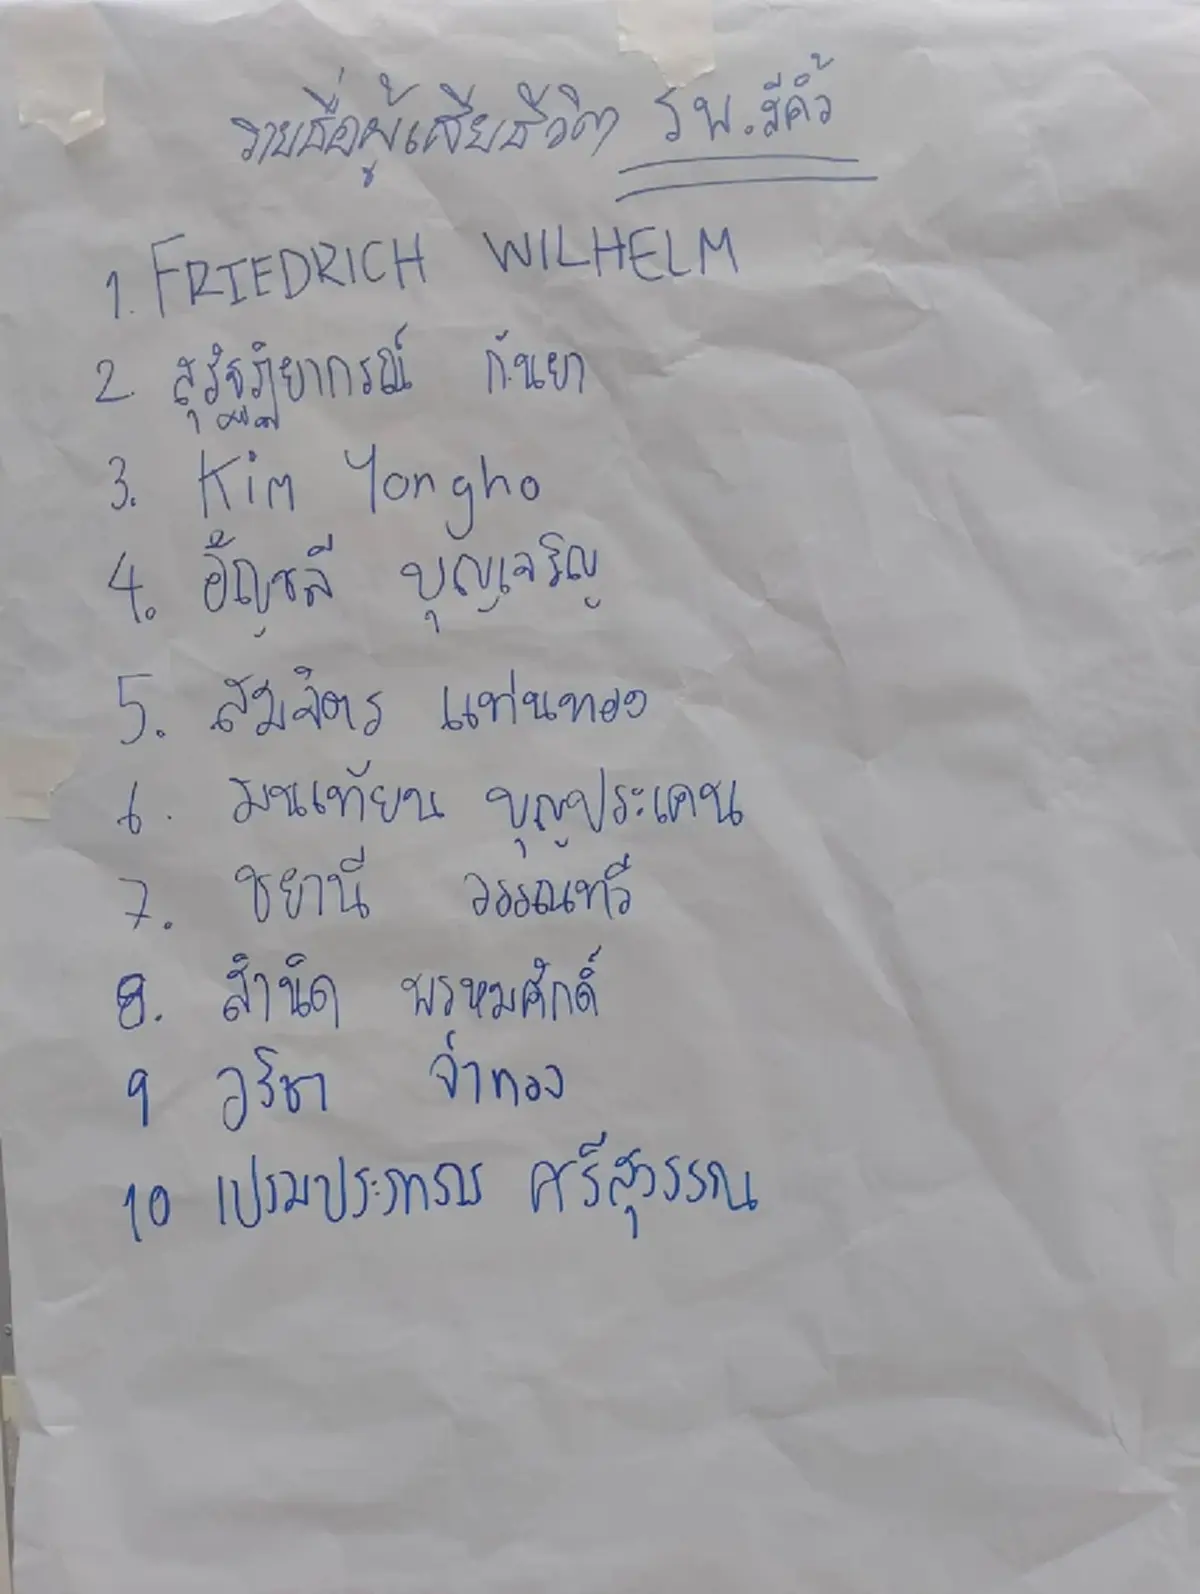 รายชื่อผู้เสียชีวิต รพ.สีคิ้ว
1. FRIEDRICH WILHELM
2. กันยา
3. Kim Yongho
4. อัญชลี บุญเจริญ
5. สมจิตร แท่นทอง
6. มนเทียน บุญประเคน
7. ชยานี วรรณทวี
8. สำนิด พรหมศักดิ์
9 อริชา จ่าทอง
10 ศรีสุวรรณ